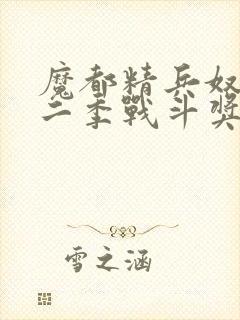 魔都精兵奴
二季戰斗獎
雪之涵